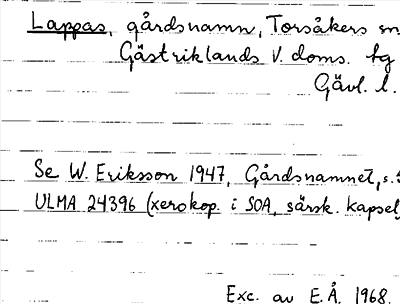 Lappas, gårdsnamn, Torsåkers sn,
Gästriklands v. doms. tg
Gävl. l.
Se W. Eriksson 1947, Gårdsnamnet, s.
ULMA 24396 (xerokop. i SOA, särsk. kapsel)
Exc. av E.Å. 1968.